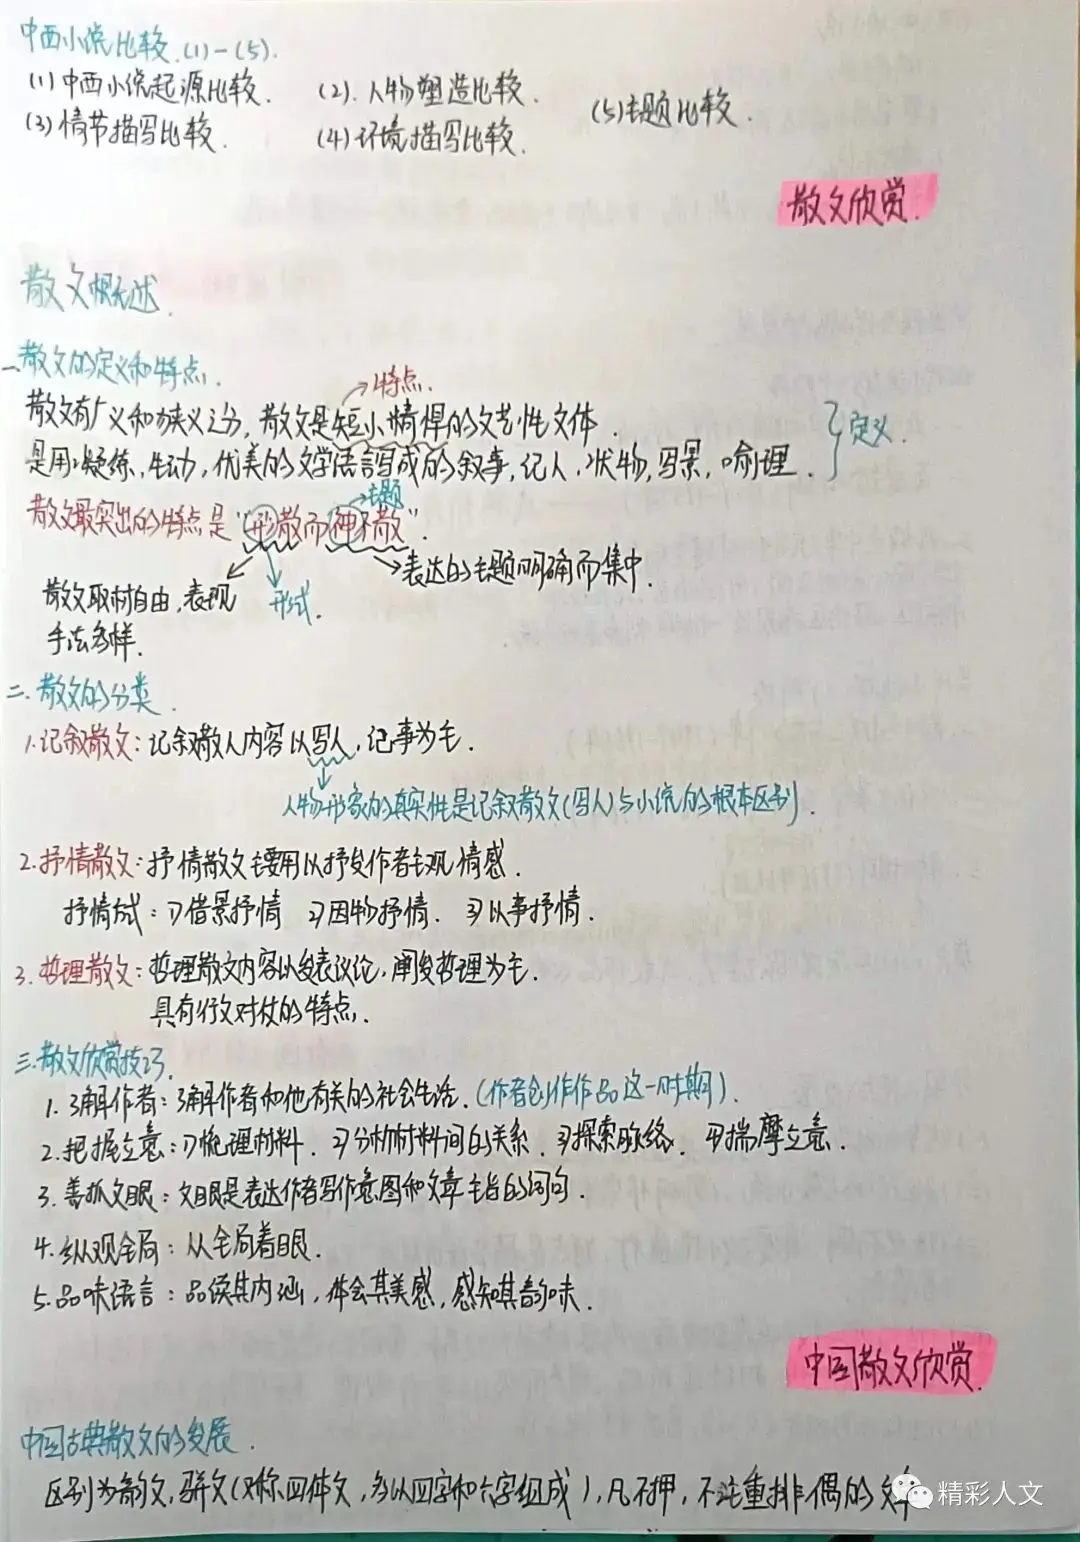 中西小说比较.(1)-(5).
(1)中西小说起源比较.
(2).人物塑造比较.
(3)情节描写比较.
(4)环境描写比较.
(5)主题比较.
散文欣赏.
散文概述.
一.散文的定义和特点.
特点.
散文有广义和狭义之分,散文是短小精悍的文艺性文体.
是用凝练,生动,优美的文学语言写成的叙事,记人,状物,写景,喻理.
定义.
主题
散文最突出的特点是“形散而神不散”.
表达的主题明确而集中.
散文取材自由,表现
形式.
手法多样.
二.散文的分类.
1.记叙散文:记叙散人内容以写人,记事为主.
人物形象的真实性是记叙散文(写人)与小说的根本区别.
2.抒情散文:抒情散文主要用以抒发作者主观情感.
抒情方式:1)借景抒情 2)因物抒情. 3)以事抒情.
3.哲理散文:哲理散文内容以发表议论,阐发哲理为主.
具有行文对仗的特点.
三.散文欣赏技巧.
1.了解作者:了解作者和他有关的社会生活.(作者创作作品这一时期).
2.把握立意:1)梳理材料. 2)分析材料间的关系. 3)探索脉络. 4)揣摩立意.
3.善抓文眼:文眼是表达作者写作意图和文章主旨的词句.
4.纵观全局:从全局着眼.
5.品味语言:品读其内涵,体会其美感,感知其韵味.
中国散文欣赏.
中国古典散文的发展.
区别为韵文,骈文(又称四体文,多以四字和六字组成),凡不押,不注重排偶的文章
精彩人文